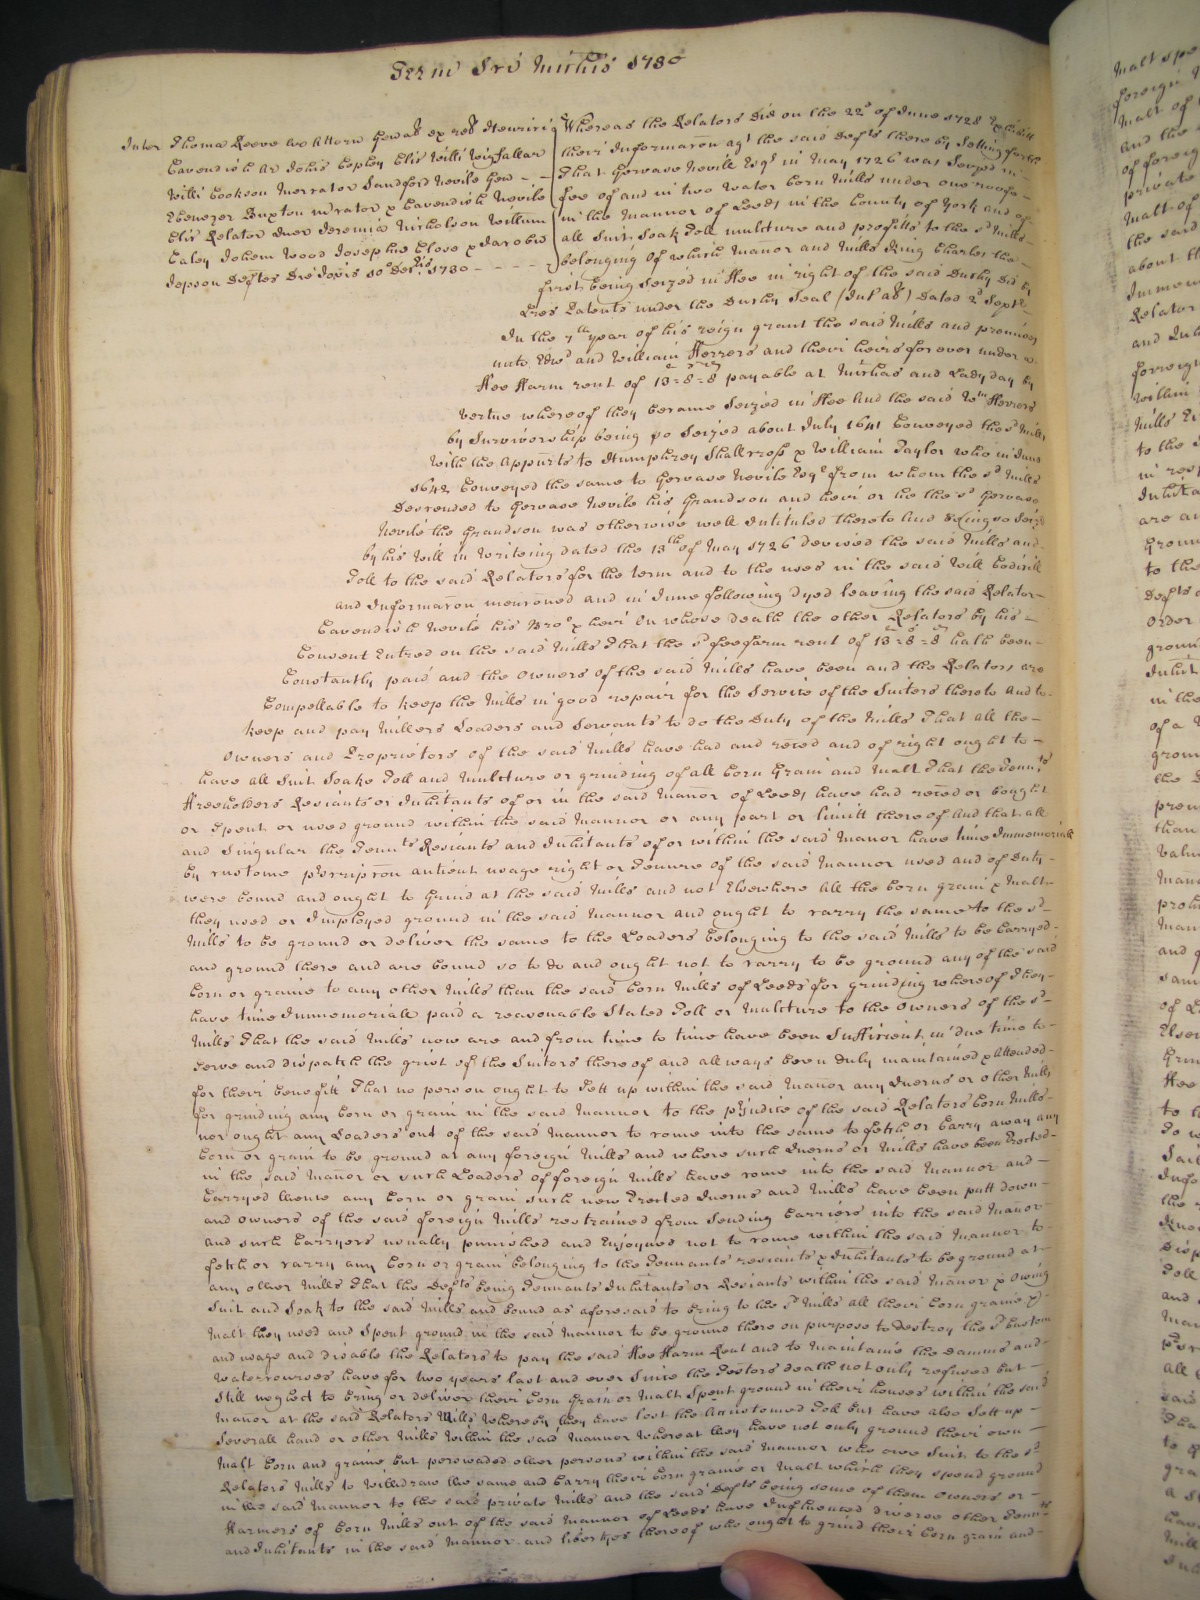 Term Scti Michis 1730
Inter Thoma Reeve Ar Attorn General ex rel Henrici
Cavendish Ar Johis Copley Cler Willi Wigfall ar
Willi Cookson Mercator Sandford Nevile Gen
Ebenezer Buxton Mcator & Cavendish Nevile
Cler Relator Quer Jeremia Nicholson Willum
Caley Johem Wood Josephu Close & Jacobu
Jepson Deftes Die Jovis 10o Decris 1730
Whereas the Relators did on the 22d of June 1728 Exhibit
their Informacon agt the said Defts there by Setting forth
That Gervase Nevill Esqr in May 1726 was Seized in
fee of and in two Water Corn Mills under one roofe
in the Mannor of Leeds in the County of York and of
all Suit Soak Toll multure and profitts to the sd Mills
belonging Of which Manor and Mills King Charles the
first being Seized in Fee in right of the said Duchy Did by
Lres Patents under the Duchy Seal (Int al) Dated 2d Septr
In the 7th year of his reign grant the said Mills and premises
unto Edwd and William Ferrers and their heirs for ever under a
Fee Farm rent of 13=8=8 payable at Michas and Lady day by
vertue whereof they became Seized in Fee And the said Wm Ferrers
by Survivorship being so Seized about July 1641 Conveyed the sd Mills
with the Appurts to Humphrey Shallcross & William Taylor who in June
1642 Conveyed the same to Gervase Nevile Esqr from whom the sd Mills
Descended to Gervase Nevile his Grandson and heir or he the sd Gervase
Nevile the Grandson was otherwise well Intituled thereto And being so Seized
by his Will in Writeing dated the 13th of May 1726 devised the said Mills and
Toll to the said Relators for the term and to the uses in the said Will Codicill
and Informacon mencioned and in June following dyed leaving the said Relator
Cavendish Nevile his Bror & heir On whose death the other Relators by his
Consent Entred on the said Mills That the sd fee farm rent of 13=8=8 hath been
Constantly paid and the Owners of the said Mills have been and the Relators are
Compellable to keep the Mills in good repair for the Service of the Suiters thereto and to
keep and pay Millers Loaders and Servants to do the Duty of the Mills That all the
Owners and Proprietors of the said Mills have had and reced and of right ought to
have all Suit Soake Toll and Mulcture or grinding of all Corn Grain and Malt That the Tennts
Freeholders Resiants or Inhitants of or in the said Manor of Leeds have had reced or bought
or Spent or used ground within the said Mannor or any part or limitt thereof And that all
and Singular the Tennts Resiants and Inhitants of or within the said Manor have time Immemoriall
by custome pscripcon antient usage right or Tenure of the said Mannor used and of Duty
were bound and ought to Grind at the said Mills and not Elsewhere All the Corn grain & Malt
they used or Imployed ground in the said Mannor and ought to carry the same to the sd
Mills to be ground or deliver the same to the Loaders belonging to the said Mills to be Carryed
and ground there and are bound so to do and ought not to carry to be ground any of the said
Corn or graine to any other Mills than the said Corn Mills of Leeds for grinding whereof They
have time Immemoriall paid a reasonable Stated Toll or Mulcture to the Owners of the sd
Mills That the said Mills now are and from time to time have been Sufficient in due time to
Serve and dispatch the grist of the Suitors thereof and all ways been duly maintained & Attended
for their benefitt That no person ought to Sett up within the said Manor any Querns or other Mills
for grinding any Corn or grain in the said Mannor to the pjudice of the said Relators Corn Mills
nor ought any Loaders out of the said Mannor to come into the same to fetch or Carry away any
Corn or grain to be ground at any foreign Mills and where such Querns or Mills have been Erected
in the said Manor or such Loaders of foreign Mills have come into the said Mannor and
Carryed thence any Corn or grain such new Erected Querns and Mills have been putt down
and Owners of the said foreign Mills restrained from Sending Carriers into the said Manor
and such Carryers usually punished and Enjoyned not to come within the said Mannor to
fetch or carry any Corn or grain belonging to the Tennants resiants & Inhitants to be ground at
any other Mills That the Defts being Tennants Inhitants or Resiants within the said Manor & Owing
Suit and Soak to the said Mills and bound as aforesaid to bring to the sd Mills all their Corn graine &
Malt they used and Spent ground in the said Mannor to be ground there on purpose to destroy the sd Custom
and usage and disable the Relators to pay the said Fee Farm Rent and to Maintaine the Damms and
Watercourses have for two years last and ever Since the Testors death not only refused but
Still neglect to bring or deliver their Corn Grain or Malt Spent ground in their houses within the said
Manor at the said Relators Mills Whereby they have lost the Accustomed Toll but have also Sett up
Severall hand or other Mills within the said Mannor Whereat they have not only ground their own
Malt Corn and graine but perswaded other persons within the said Mannor who owe Suit to the sd
Relators Mills to Withdraw the same and Carry their Corn graine or Malt which they spend ground
in the said Mannor to the said private Mills and the said Defts being some of them Owners or
Farmers of Corn Mills out of the said Mannor of Leeds have Influenced diverse other Tennts
and Inhitants in the said Mannor and liberties thereof who ought to grind their Corn grain and